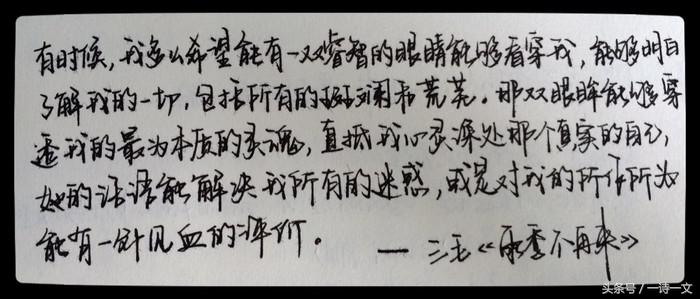 有时候，我多么希望能有一双睿智的眼睛能够看穿我，能够明白
了解我的一切，包括所有的斑斓和荒芜。那双眼眸能够穿
透我的最为本质的灵魂，直抵我心灵深处那个真实的自己，
她的话语能解决我所有的迷惑，或是对我的所作所为
能有一针见血的评价。
— 三毛《雨季不再来》
头条号/一诗一文